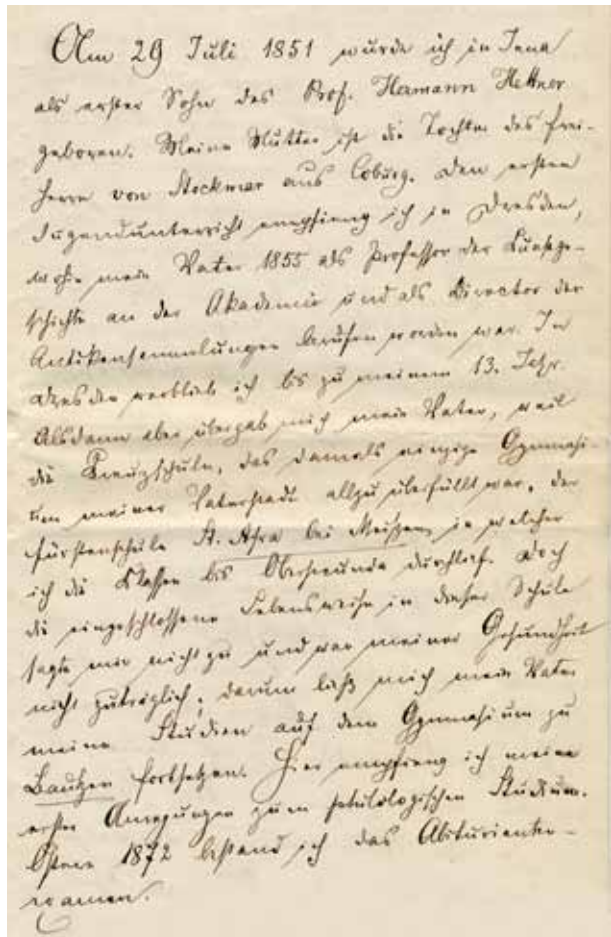 Am 29 Juli 1851 wurde ich in Jena
als erster Sohn des Prof. Hermann Hettner
geboren. Meine Mutter ist die Tochter des Frei-
herrn von Stockmar aus Coburg. Den ersten
Jugendunterricht empfieng ich in Dresden,
wohin mein Vater 1855 als Professor der Kunstge-
schichte an der Akademie und als Director der
Antikensammlungen berufen worden war. In
Dresden verblieb ich bis zu meinem 13. Jahr.
Alsdann aber übergab mich mein Vater, weil
die Kreuzschule, das damals einzige Gymnasi-
um meiner Vaterstadt allzu überfüllt war, der
Fürstenschule St. Afra bei Meißen, in welcher
ich die Klassen bis Obersecunda durchlief. Doch
die eingeschlossene Lebensweise in dieser Schule
sagte mir nicht zu und war meiner Gesundheit
nicht zuträglich, darum ließ mich mein Vater
meine Studien auf dem Gymnasium zu
Bautzen fortsetzen. Hier empfieng ich meine
ersten Anregungen zum philologischen Studium.
Ostern 1872 bestand ich das Abiturienten-
examen.